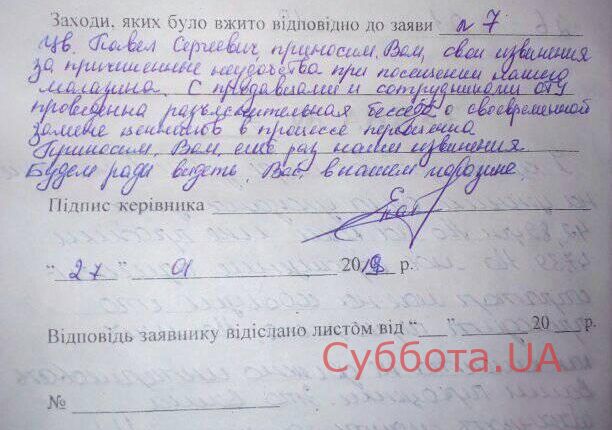 Заходи, яких було вжито відповідно до заяви № 7
Ув. Павел Сергеевич приносим Вам, свои извинения
за причиненные неудобства при посещении нашего
магазина. С продавцами и сотрудниками
проведенна разъяснительная беседа о своевременной
замене ценников в процессе переоценка
Приносим Вам, ещё раз наши извинения
Будем рады видеть Вас, в нашем магазине.
Підпис керівника
"27" 01 2018 р.
Відповідь заявнику відіслано листом від "___" ______ 20 ___ р.
Суббота.UA
№